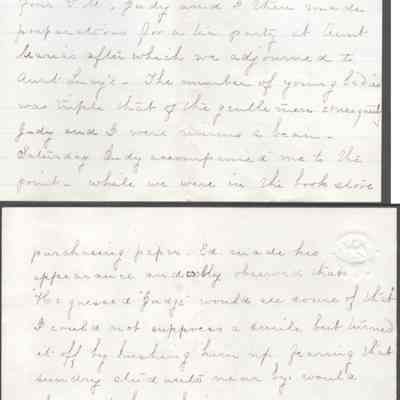 four P.M., Judy and I then made
preparations for a tea party at Aunt
after which we adjourned to
Aunt Lucy's - The number of young ladies
was triple that of the gentlemen consequently
Judy and I were minus a beau -
Saturday Judy accompanied me to the
point - while we were in the book store
purchasing paper - Ed made his
appearance and observed that
"He guessed 'Judge' would see some of that"
I could not suppress a smile but turned
it off by hushing him up fearing that
sundry students near by would